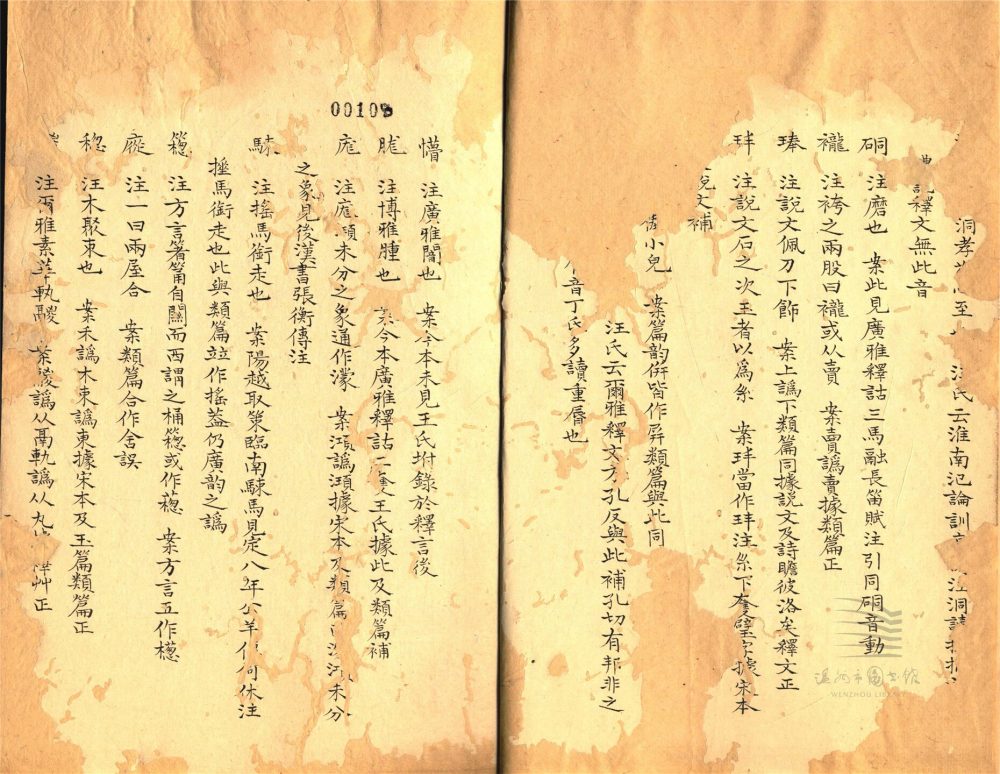 洞孝 至 汪氏云淮南氾論訓 洞
說釋文無此音
硐 注磨也 案此見廣雅釋詁三馬融長笛賦注引同硐音動
襱 注袴之兩股曰襱或从賣 案賣譌賣據類篇正
琫 注說文佩刀下飾 案上譌下類篇同據說文及詩瞻彼洛矣釋文正
玤 注說文石之次玉者以爲系 案玤當作玤注系下奪璧字據宋本
說文補
小兒 案篇韵倂皆作屛類篇與此同
汪氏云爾雅釋文方孔反與此補孔切有邦非之
音丁氏多讀重脣也
懵 注廣雅闇也 案今本未見王氏坿錄於釋言後
朧 注博雅腫也 案今本廣雅釋詁二奪王氏據此及類篇補
庬 注庬澒未分之象通作濛 案鴻譌澒據宋本及類篇 未分
之象見後漢書張衡傳注
駷 注搖馬銜走也 案陽越取策臨南駷馬見定八年公羊 何休注
摇馬銜走也此與類篇竝作搖蓋仍廣韵之譌
注方言箸筩自關而西謂之桶 或作 案方言五作
注一曰兩屋合 案類篇合作舍誤
注木聚束也 案禾譌木束譌東據宋本及玉篇類篇正
注爾雅素華軌鬷 案 譌从鬲軌譌从九 艸正
00108
温州市图书馆
WENZHOU LIBRARY